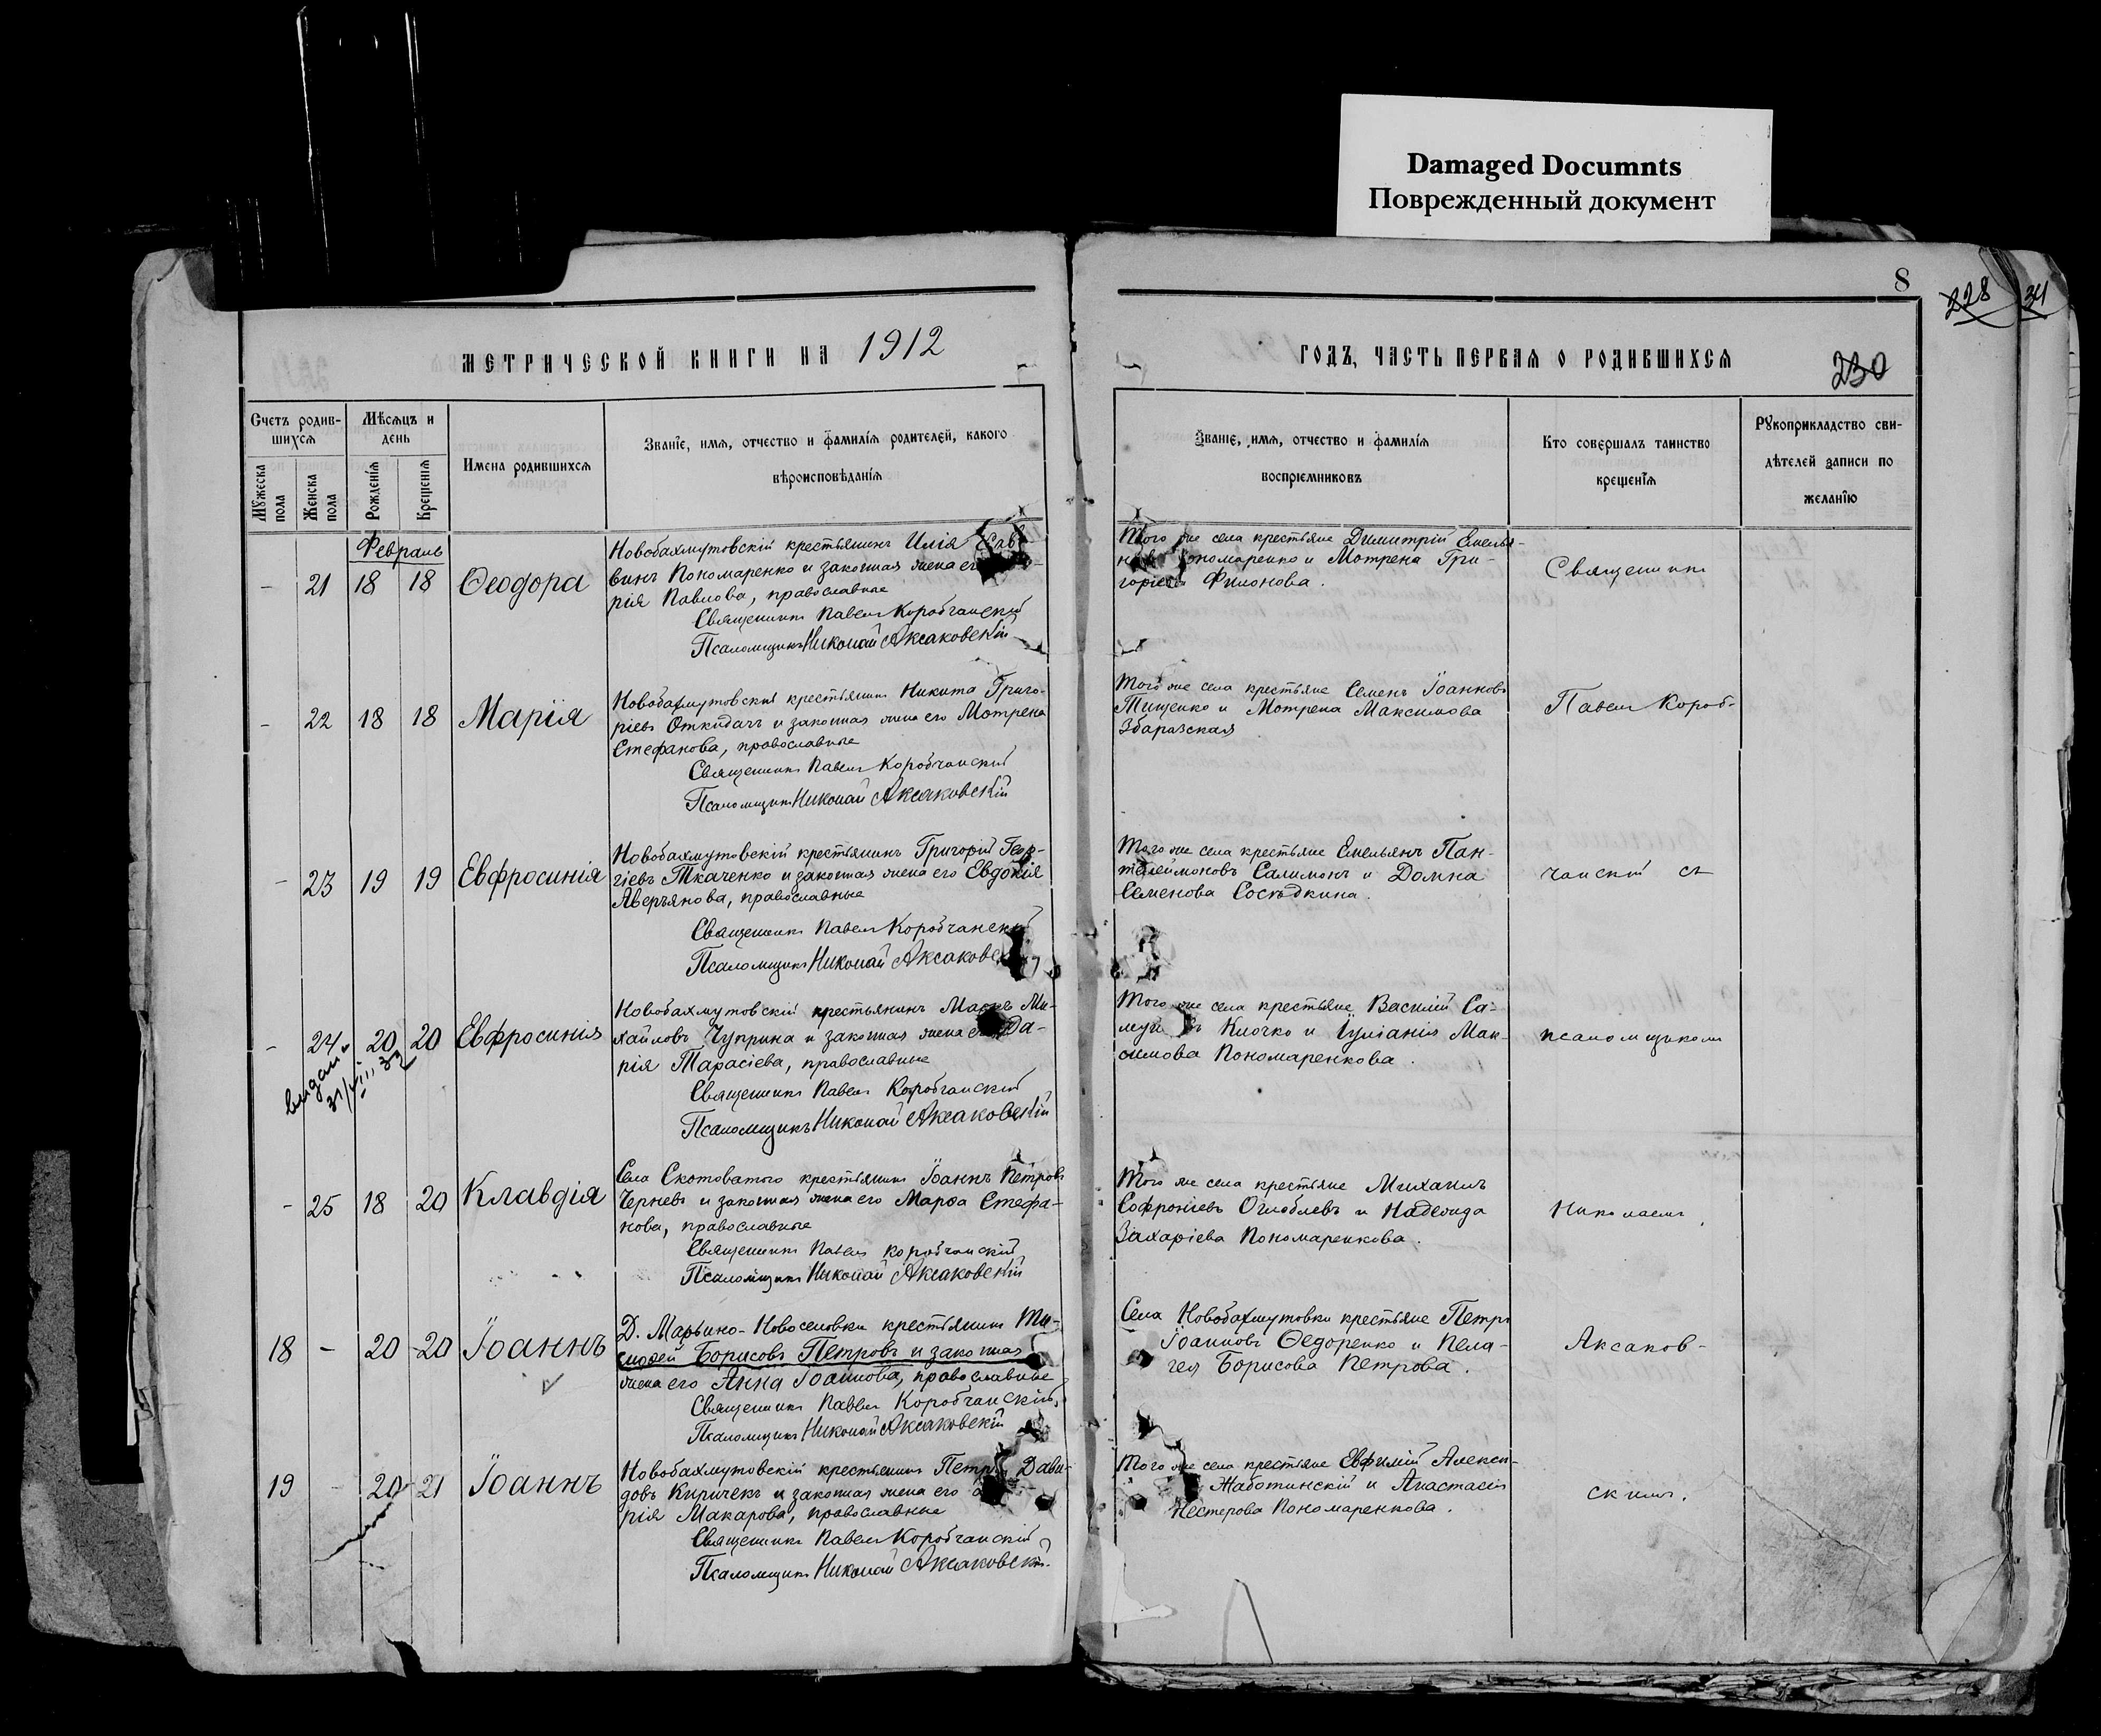 Damaged Documnts
Поврежденный документ
8
228
34
МЕТРИЧЕСКОЙ КНИГИ НА 1912
ГОДЪ, ЧАСТЬ ПЕРВАЯ О РОДИВШИХСЯ
230
Счетъ родив-
шихся
Мѣсяцъ и
день
Мужеска
пола
Женска
пола
Рожденія
Крещенія
Имена родившихся
Званіе, имя, отчество и фамилія родителей, какого
вѣроисповѣданія
Званіе, имя, отчество и фамилія
воспріемниковъ
Кто совершалъ таинство
крещенія
Рукоприкладство сви-
дѣтелей записи по
желанію
Февраль
- 21 18 18 Ѳеодора
Новобахмутовскій крестьянинъ Илія Сав-
винъ Пономаренко и законная жена его
рія Павлова, православные
Священникъ Павелъ Коробчанскій
Псаломщикъ Николай Аксаковскій
Того же села крестьяне Димитрій Емелья-
Пономаренко и Мотрена Гри-
горіева Филонова.
Священникъ
- 22 18 18 Марія
Новобахмутовскій крестьянинъ Никита Григо-
ріевъ Откидачъ и законная жена его Мотрена
Стефанова, православные
Священникъ Павелъ Коробчанскій
Псаломщикъ Николай Аксаковскій
Того же села крестьяне Семенъ Іоанновъ
Тищенко и Мотрена Максимова
Збаразская
Павелъ Короб-
- 23 19 19 Евфросинія
Новобахмутовскій крестьянинъ Григорій Геор-
гіевъ Ткаченко и законная жена его Евдокія
Аверьянова, православные
Священникъ Павелъ Коробчанскій
Псаломщикъ Николай Аксаковскій
Того же села крестьяне Емельянъ Пан-
телеймоновъ Салимонъ и Домна
Семенова Сосѣдкина.
чанскій съ
- 24 20 20 Евфросинія
Новобахмутовскій крестьянинъ Маркъ Ми-
хайловъ Чуприна и законная жена его Да-
рія Тарасіева, православные
Священникъ Павелъ Коробчанскій
Псаломщикъ Николай Аксаковскій
Того же села крестьяне Василій Са-
Клочко и Іуліанія Мак-
симова Пономаренкова.
псаломщикомъ
- 25 18 20 Клавдія
Села Скотоватого крестьянинъ Іоаннъ Петровъ
Черневъ и законная жена его Марѳа Стефа-
нова, православные
Священникъ Павелъ Коробчанскій
Псаломщикъ Николай Аксаковскій
Того же села крестьяне Михаилъ
Софроніевъ Оглоблевъ и Надежда
Захаріева Пономаренкова.
Николаемъ
18 - 20 20 Іоаннъ
Д. Марьино-Новоселовки крестьянинъ Ти-
моѳей Борисовъ Петровъ и законная
жена его Анна Іоаннова, православные
Священникъ Павелъ Коробчанскій
Псаломщикъ Николай Аксаковскій
Села Новобахмутовки крестьяне Петръ
Іоанновъ Ѳедоренко и Пела-
гея Борисова Петрова.
Аксаков-
19 - 20 21 Іоаннъ
Новобахмутовскій крестьянинъ Петръ Дави-
довъ Киричекъ и законная жена его
рія Макарова, православные
Священникъ Павелъ Коробчанскій
Псаломщикъ Николай Аксаковскій.
Того же села крестьяне Евфимій Алекси-
Жаботинскій и Анастасія
Нестерова Пономаренкова.
скимъ.